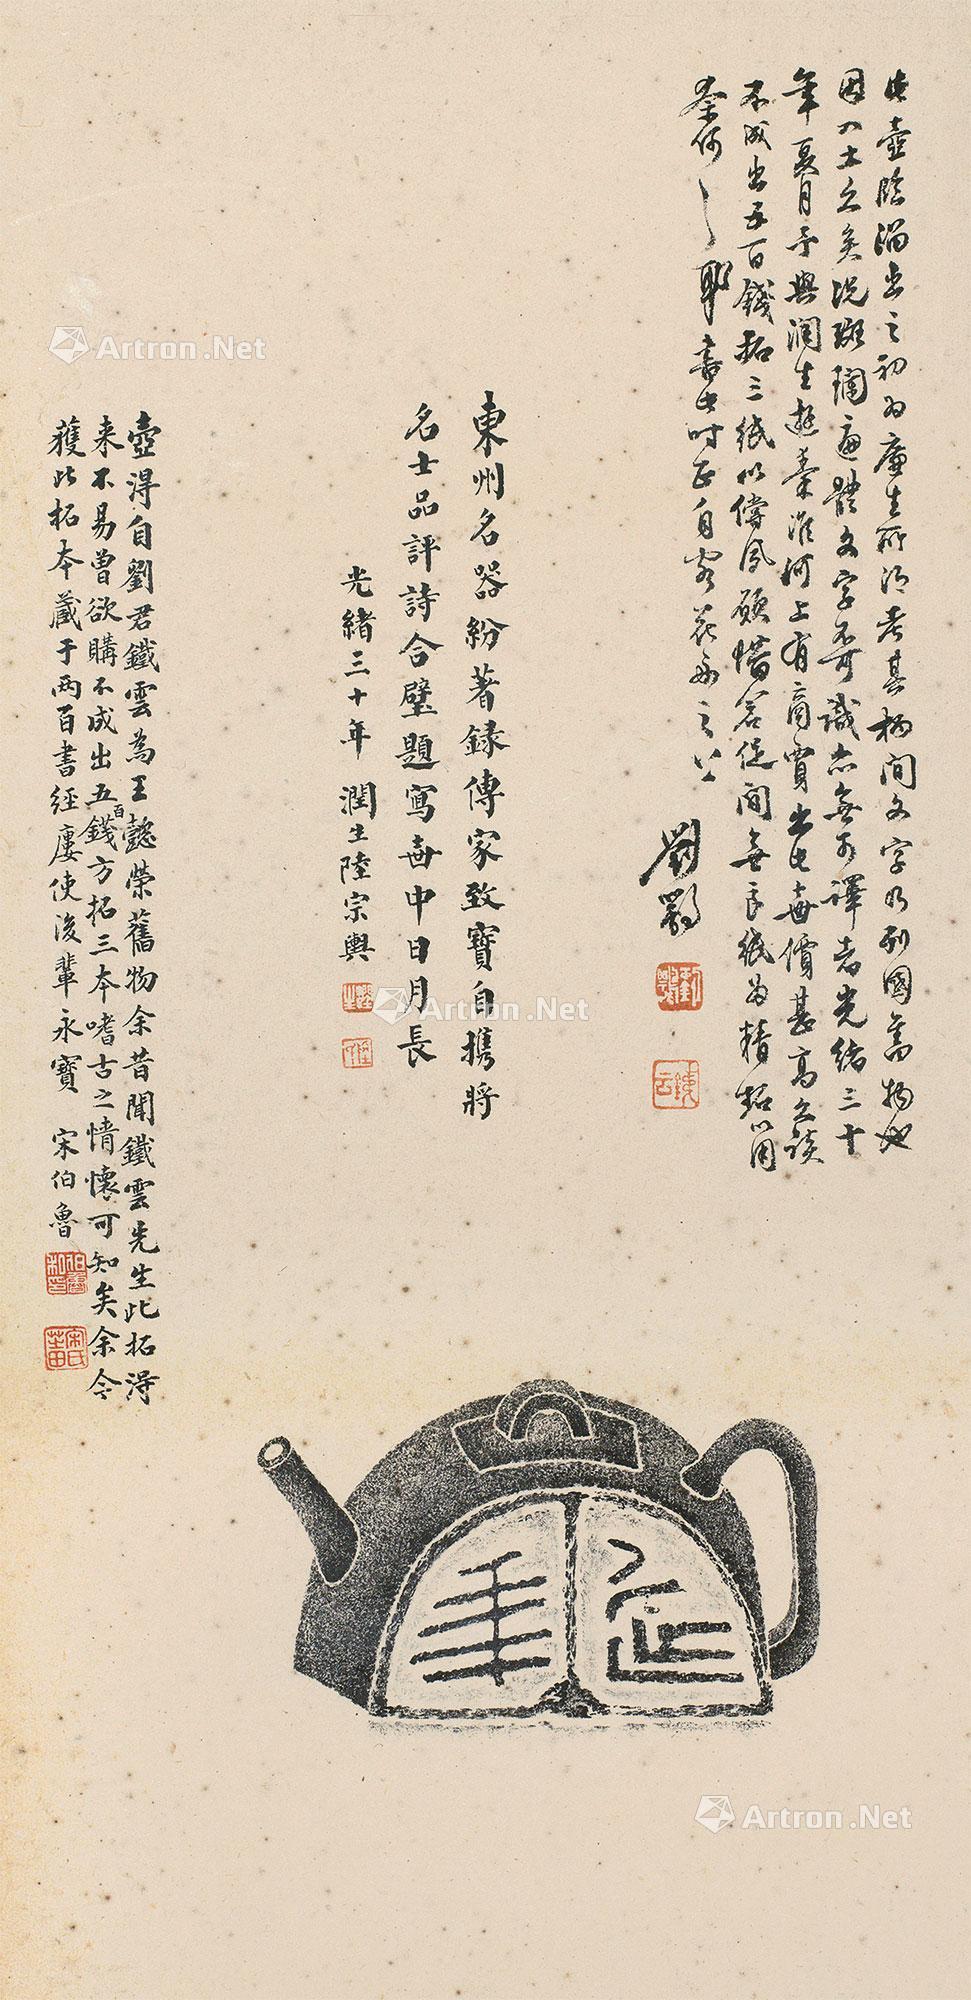 此壺臨淄出之初為廉生所得考其柄間文字乃列國舊物也
因入土之矣況斑斕遍體文字不可識亦無可譯者光緒三十
年夏月予與潤生遊秦淮河上有商賈出此壺價甚高久談
不成出五百錢拓三紙以償夙願惜倉促間無良紙為精拓以用
奈何之耶書此時正自家花無之上
劉鶚
東州名器紛著錄傳家致寶自攜將
名士品評詩合璧題寫壺中日月長
光緒三十年潤生陸宗輿
壺得自劉君鐵雲為王懿榮舊物余昔聞鐵雲先生此拓得
來不易曾欲購不成出五百錢方拓三本嗜古之情懷可知矣余今
獲此拓本藏于兩百書經廔使後輩永寶 宋伯魯
延年
Artron.Net
Artron.Net
Artron.Net